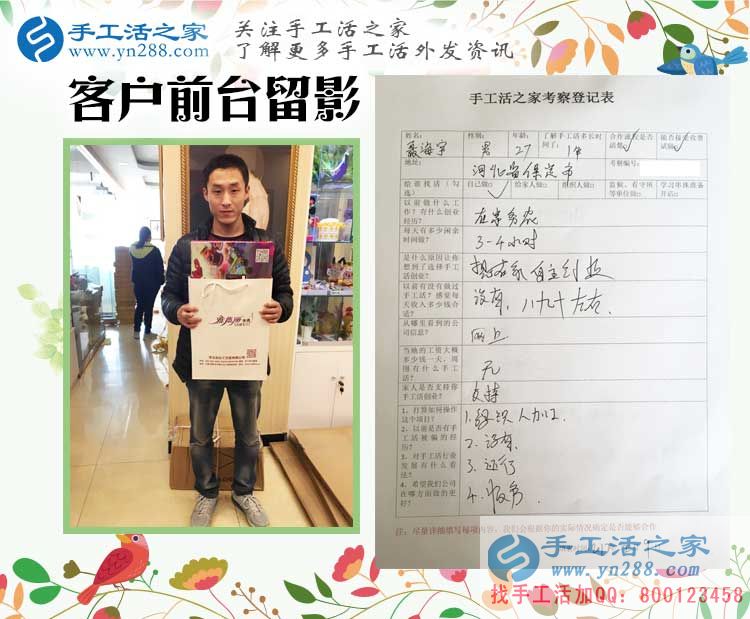 手工活之家
www.yn288.com
关注手工活之家
了解更多手工活外发资讯
客户前台留影
手工活之家考察登记表
姓名: 聂海宇 性别: 男 年龄: 27 了解手工活多长时间了? 1年 合作流程是否清楚√ 能否接受收费试做√
地址: 河北省保定市 考察编号:
给谁找活(勾选) 自己做√ 给家人做□ 组织人做□ 监狱、看守所等单位做□ 学习串珠准备开店□
以前做什么工作?有什么创业经历? 在家务农
每天有多少闲余时间做? 3-4小时
是什么原因让你想到了选择手工活创业? 想在家自主创业
以前有没有做过手工活?感觉每天收入多少钱合适? 没有,八九十左右.
从哪里看到的公司信息? 网上
当地的工资大概多少钱一天,周围有什么手工活? 无
家人是否支持你手工活创业? 支持
1、打算如何操作这个项目? 1.组织人加工.
2、以前是否有手工活被骗的经历? 2.没有.
3、对手工活行业发展有什么看法? 3.还行
4、希望我们公司在哪方面做的更好? 4.服务
注:尽量详细填写每项内容,我们会根据你的实际情况确定是否能够合作
手工活之家
www.yn288.com
找手工活加QQ:800123458